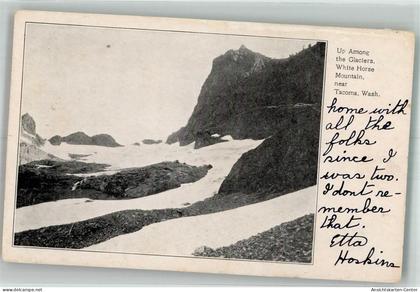 Up Among
the Glaciers,
White Horse
Mountain,
near
Tacoma, Wash.
home with
all the
folks
since I
was two.
I don't re-
member
that.
Etta
Hoskins
AnsichtskartenCenter.com